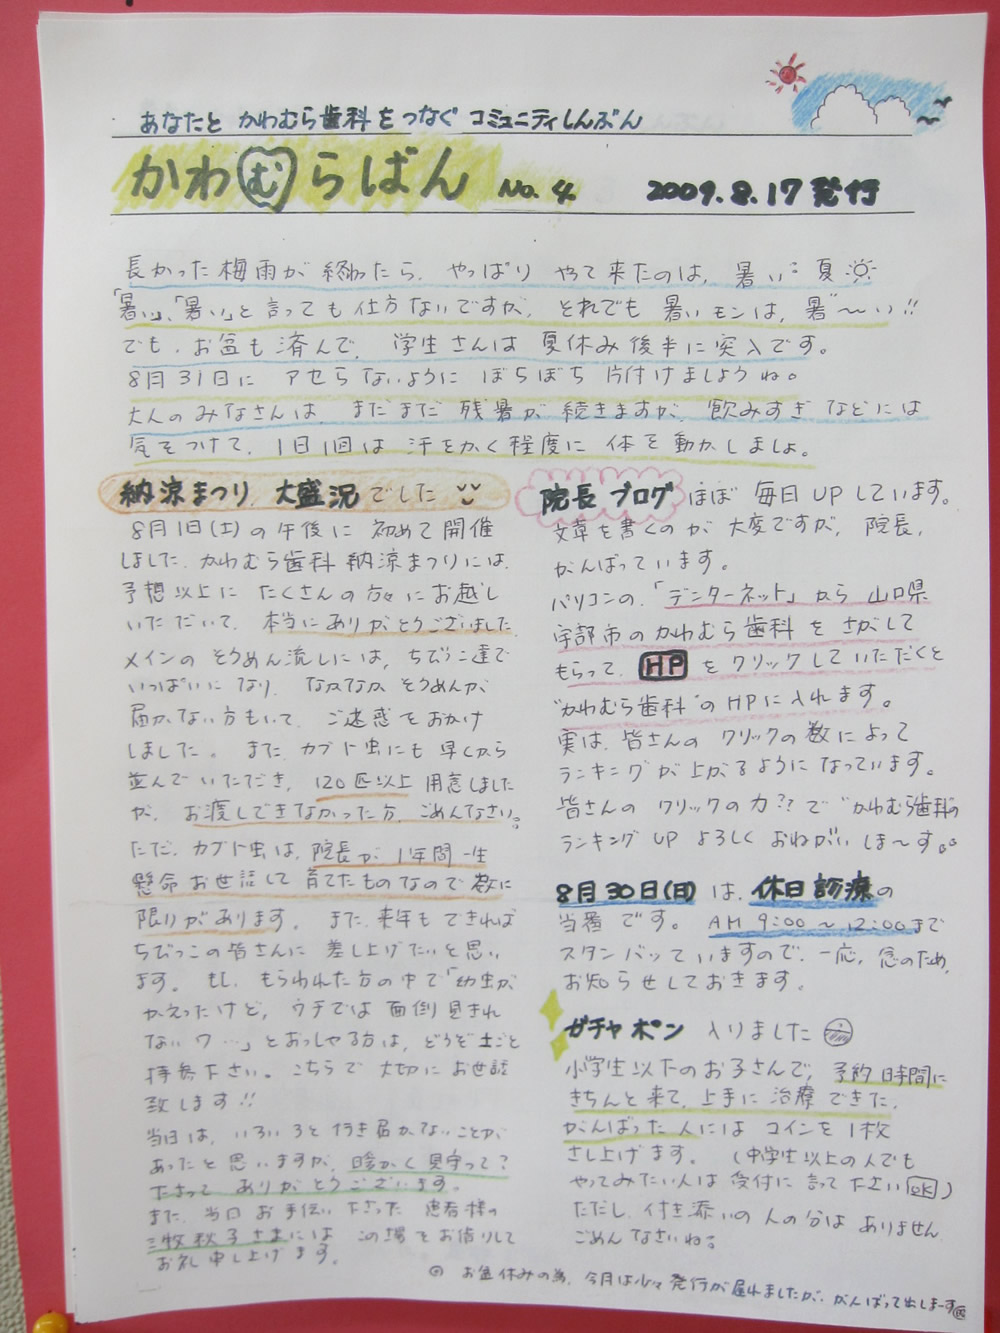 あなたと かわむら歯科をつなぐ コミュニティしんぶん
かわむらばん No.4 2009.8.17発行
長かった梅雨が終わったら、やっぱり やって来たのは、暑い夏
「暑い」、「暑い」と言っても仕方ないですが、それでも 暑いモンは、暑〜い!!
でも、お盆も済んで、学生さんは 夏休み後半に突入です。
8月31日に アセらないように ぼちぼち 片付けましょうね。
大人のみなさんは、まだまだ 残暑が 続きますが、飲みすぎ などには
気をつけて、1日1回は 汗をかく程度に 体を動かしましょ。
納涼まつり 大盛況でした
8月1日(土)の午後に 初めて開催
しました、かわむら歯科 納涼まつりには、
予想以上に たくさんの方々にお越し
いただいて、本当にありがとうございました。
メインの そうめん流しには、ちびっこ達で
いっぱいになり、なかなか そうめんが、
届かない方もいて、ご迷惑をおかけ
しました。また、カブト虫にも 早くから
並んでいただき、120匹以上 用意しました
が、お渡しできなかった方、ごめんなさい。
ただ、カブト虫は、院長が、1年間一生
懸命お世話して 育てたものなので 数に
限りがあります。また、来年も できれば
ちびっこの皆さんに 差し上げたいと思い
ます。もし、もらわれた方の中で「幼虫が
かえったけど、ウチでは 面倒見きれ
ないワ…」とおっしゃる方は、どうぞ土ごと
持参下さい。こちらで 大切に お世話
致します!!
当日は、いろいろと行き届かないことが
あったと思いますが、暖かく見守って
下さって ありがとうございます。
また、当日 お手伝い下さった 患者様の
三牧 秋子さまには この場をお借りして
お礼申し上げます。
院長ブログ ほぼ 毎日UPしています。
文章を書くのが 大変ですが、院長、
がんばっています。
パソコンの、「デンターネット」から 山口県
宇部市のかわむら歯科を さがして
もらって、HPをクリックしていただくと
"かわむら歯科"のHPに入れます。
実は、皆さんの クリックの数によって
ランキングが上がるようになっています。
皆さんの クリックの力??で "かわむら歯科"の
ランキングUP よろしく おねがいしま〜す。
8月30日(日)は、休日診療の
当番です。AM 9:00〜12:00まで
スタンバッていますので、一応、念のため、
お知らせしておきます。
ガチャポン 入りました
小学生以下のお子さんで、予約時間に
きちんと来て、上手に治療できた、
がんばった人には コインを1枚
さし上げます。(中学生以上の人でも
やってみたい人は 受付に言って下さいOK)
ただし、付き添いの人の分は ありません
ごめんなさいね。
お盆休みの為、今月は少々 発行が遅れましたが、がんばって出しまーす